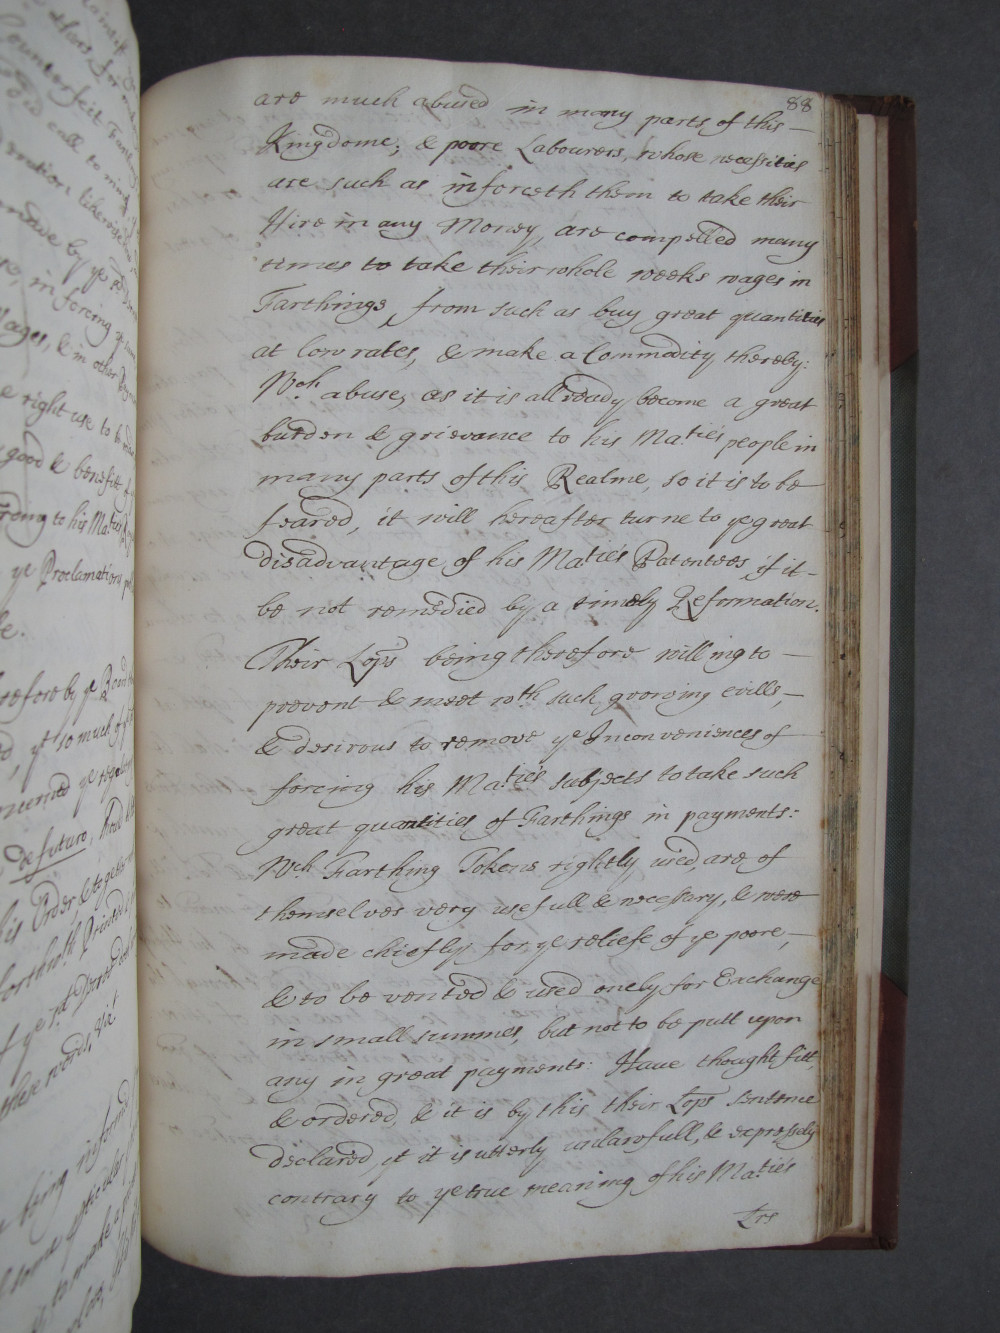 88
are much abused in many parts of this –
Kingdome; & poore Labourers, whose necessities
are such as inforceth them to take their
Hire in any Money, are compelled many
times to take their whole weeks wages in
Farthings, from such as buy great quantities
at low rates, & make a Commodity thereby:
Wch. abuse, as it is allready become a great
burden & grievance to his Ma:ties people in
many parts of this Realme, so it is to be
feared, it will hereafter turne to ye great
disadvantage of his Ma:ties Patentees, if it –
be not remedied by a timely Reformation.
Their Lops being therefore willing to –
prevent & meet wth such growing evills, –
& desirous to remove ye Inconveniences of
forcing his Ma:ties subjects to take such
great quantities of Farthings in payments:
Wch. Farthing Tokens rightly used, are of
themselves very usefull & necessary, & were
made chiefly for ye reliefe of ye poore, –
& to be vented & used onely for Exchange
in small summes, but not to be putt upon
any in great payments: Have thought fitt,
& ordered, & it is by this their Lops Sentence
declared, yt it is utterly unlawfull, & expressely
contrary to ye true meaning of his Ma:ties
Lrs
counterfeit
call to mind
by ye
in forcing
Wages, & in other
right use to be
good & benefitt
to his Ma:ties
ye Proclamation
therefore by ye Board
yt so much of
concerned ye
De futuro,
his Order, & together
forthwth Printed
of ye
these words, Vizt
being informed
some
to make a